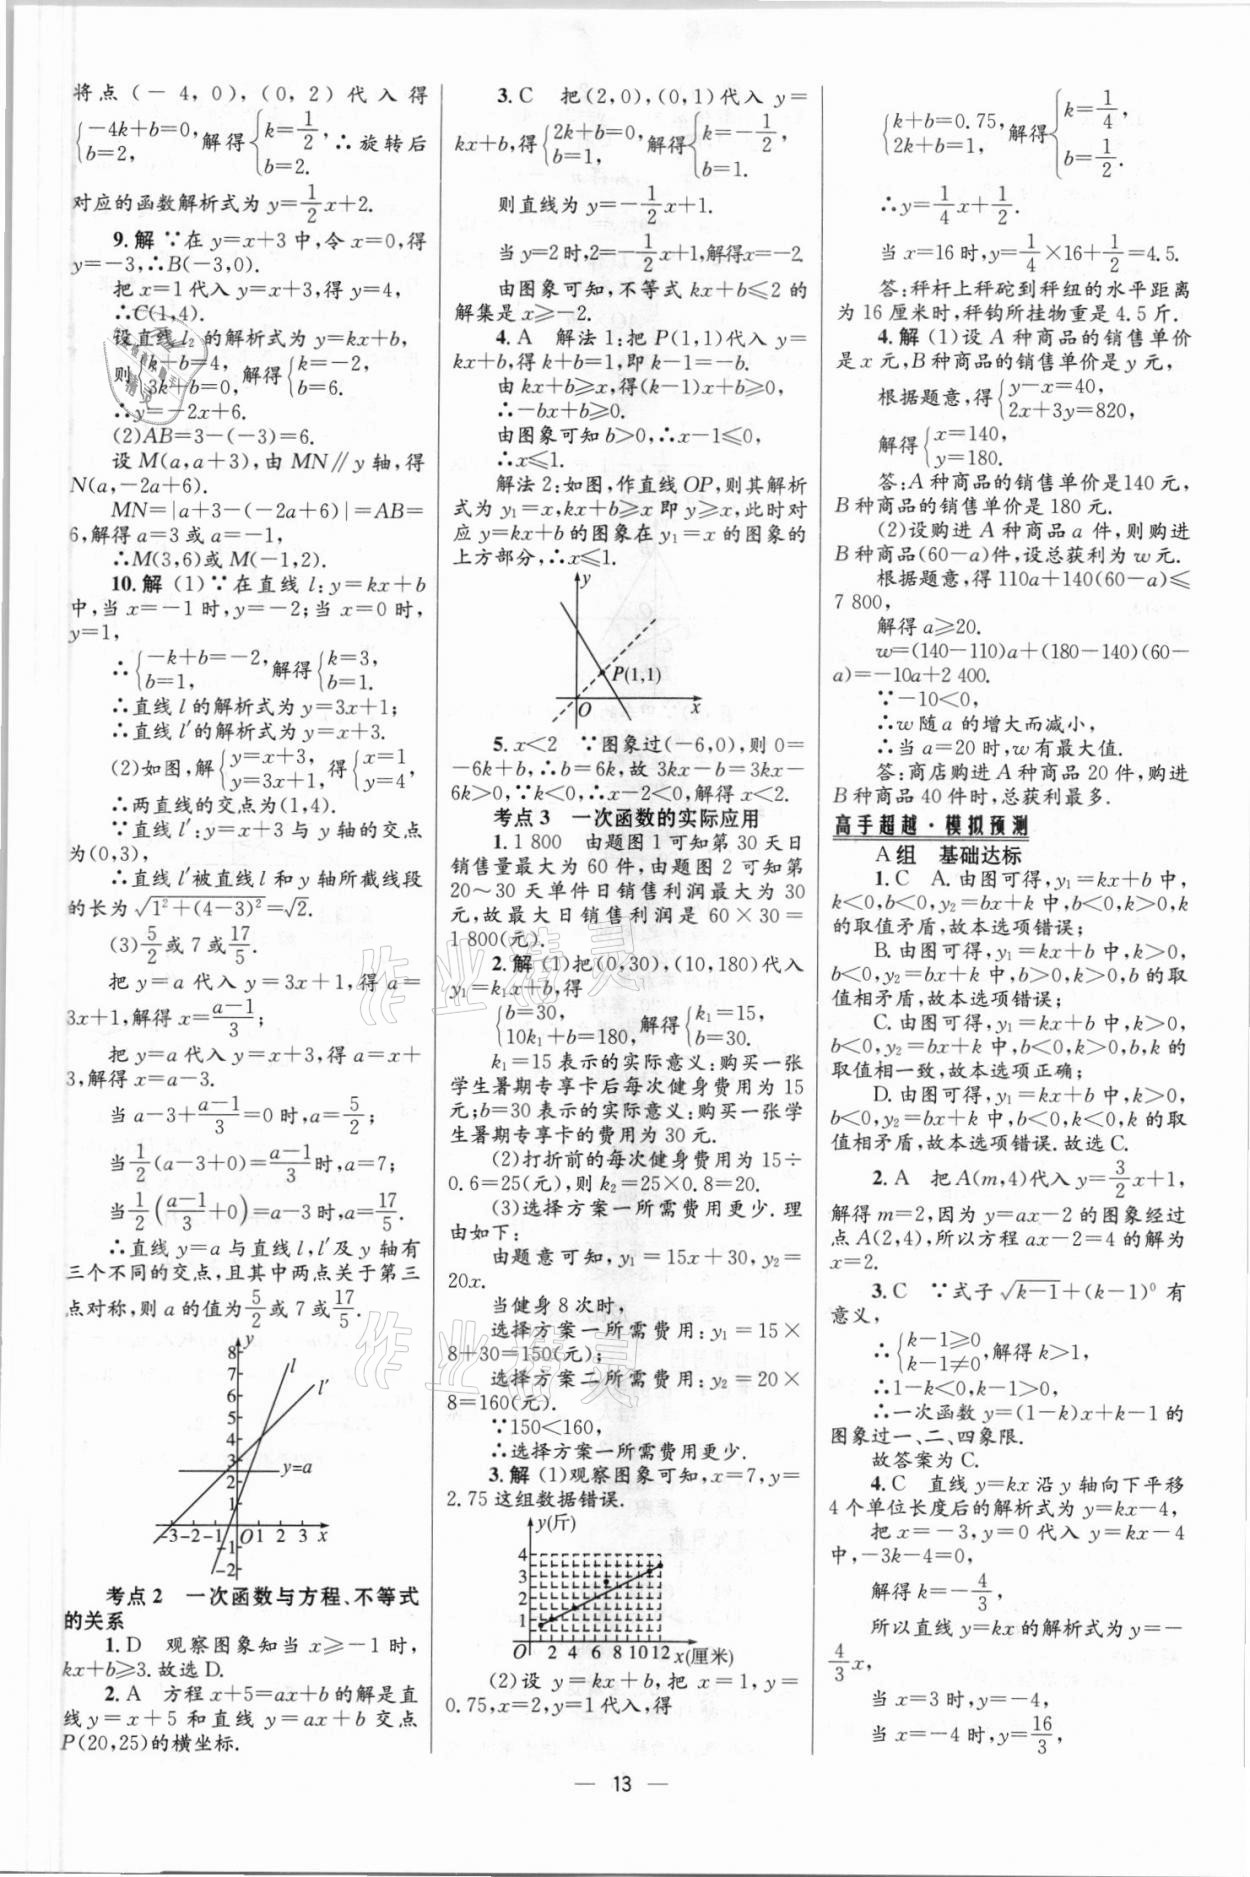 将点(－4,0),(0,2)代入得
{－4k＋b＝0, b＝2, 解得{k＝1/2, b＝2. ∴旋转后
对应的函数解析式为y＝1/2x＋2.
9.解 ∵在y＝x＋3中,令x＝0,得
y＝－3,∴B(－3,0).
把x＝1代入y＝x＋3,得y＝4,
∴C(1,4).
设直线l₂的解析式为y＝kx＋b,
则{k＋b＝4, 3k＋b＝0, 解得{k＝－2, b＝6.
∴y＝－2x＋6.
(2)AB＝3－(－3)＝6.
设M(a,a＋3),由MN∥y轴,得
N(a,－2a＋6).
MN＝|a＋3－(－2a＋6)|＝AB＝
6,解得a＝3或a＝－1,
∴M(3,6)或M(－1,2).
10.解 (1)∵在直线l:y＝kx＋b
中,当x＝－1时,y＝－2;当x＝0时,
y＝1,
∴{－k＋b＝－2, b＝1, 解得{k＝3, b＝1.
∴直线l的解析式为y＝3x＋1;
∴直线l′的解析式为y＝x＋3.
(2)如图,解{y＝x＋3, y＝3x＋1, 得{x＝1, y＝4,
∴两直线的交点为(1,4).
∵直线l′:y＝x＋3与y轴的交点
为(0,3),
∴直线l′被直线l和y轴所截线段
的长为√(1²＋(4－3)²)＝√2.
(3)5/2或7或17/5.
把y＝a代入y＝3x＋1,得a＝
3x＋1,解得x＝(a－1)/3;
把y＝a代入y＝x＋3,得a＝x＋
3,解得x＝a－3.
当a－3＋(a－1)/3＝0时,a＝5/2;
当1/2(a－3＋0)＝(a－1)/3时,a＝7;
当1/2((a－1)/3＋0)＝a－3时,a＝17/5.
∴直线y＝a与直线l,l′及y轴有
三个不同的交点,且其中两点关于第三
点对称,则a的值为5/2或7或17/5.
y
8
7
6
5
4
3
2
1
l
l′
y＝a
－3－2－1 O 1 2 3 x
－1
－2
考点2 一次函数与方程、不等式
的关系
1.D 观察图象知当x≥－1时,
kx＋b≥3.故选D.
2.A 方程x＋5＝ax＋b的解是直
线y＝x＋5和直线y＝ax＋b交点
P(20,25)的横坐标.
3.C 把(2,0),(0,1)代入y＝
kx＋b,得{2k＋b＝0, b＝1, 解得{k＝－1/2, b＝1.
则直线为y＝－1/2x＋1.
当y＝2时,2＝－1/2x＋1,解得x＝－2.
由图象可知,不等式kx＋b≤2的
解集是x≥－2.
4.A 解法1:把P(1,1)代入y＝
kx＋b,得k＋b＝1,即k－1＝－b.
由kx＋b≥x,得(k－1)x＋b≥0,
∴－bx＋b≥0.
由图象可知b>0,∴x－1≤0,
∴x≤1.
解法2:如图,作直线OP,则其解析
式为y₁＝x,kx＋b≥x即y≥x,此时对
应y＝kx＋b的图象在y₁＝x的图象的
上方部分,∴x≤1.
y
P(1,1)
O x
5.x<2 ∵图象过(－6,0),则0＝
－6k＋b,∴b＝6k,故3kx－b＝3kx－
6k>0,∵k<0,∴x－2<0,解得x<2.
考点3 一次函数的实际应用
1.1 800 由题图1可知第30天日
销售量最大为60件,由题图2可知第
20～30天单件日销售利润最大为30
元,故最大日销售利润是60×30＝
1 800(元).
2.解 (1)把(0,30),(10,180)代入
y₁＝k₁x＋b,得
{b＝30, 10k₁＋b＝180, 解得{k₁＝15, b＝30.
k₁＝15表示的实际意义:购买一张
学生暑期专享卡后每次健身费用为15
元;b＝30表示的实际意义:购买一张学
生暑期专享卡的费用为30元.
(2)打折前的每次健身费用为15÷
0.6＝25(元),则k₂＝25×0.8＝20.
(3)选择方案一所需费用更少.理
由如下:
由题意可知,y₁＝15x＋30,y₂＝
20x.
当健身8次时,
选择方案一所需费用:y₁＝15×
8＋30＝150(元);
选择方案二所需费用:y₂＝20×
8＝160(元).
∵150<160,
∴选择方案一所需费用更少.
3.解 (1)观察图象可知,x＝7,y＝
2.75这组数据错误.
y(斤)
4
3
2
1
O 2 4 6 8 10 12 x(厘米)
(2)设y＝kx＋b,把x＝1,y＝
0.75,x＝2,y＝1代入,得
{k＋b＝0.75, 2k＋b＝1, 解得{k＝1/4, b＝1/2.
∴y＝1/4x＋1/2.
当x＝16时,y＝1/4×16＋1/2＝4.5.
答:秤杆上秤砣到秤纽的水平距离
为16厘米时,秤钩所挂物重是4.5斤.
4.解 (1)设A种商品的销售单价
是x元,B种商品的销售单价是y元,
根据题意,得{y－x＝40, 2x＋3y＝820,
解得{x＝140, y＝180.
答:A种商品的销售单价是140元,
B种商品的销售单价是180元.
(2)设购进A种商品a件,则购进
B种商品(60－a)件,设总获利为w元.
根据题意,得110a＋140(60－a)≤
7 800,
解得a≥20.
w＝(140－110)a＋(180－140)(60－
a)＝－10a＋2 400.
∵－10<0,
∴w随a的增大而减小,
∴当a＝20时,w有最大值.
答:商店购进A种商品20件,购进
B种商品40件时,总获利最多.
高手超越·模拟预测
A组 基础达标
1.C A.由图可得,y₁＝kx＋b中,
k<0,b<0,y₂＝bx＋k中,b<0,k>0,k
的取值矛盾,故本选项错误;
B.由图可得,y₁＝kx＋b中,k>0,
b<0,y₂＝bx＋k中,b>0,k>0,b的取
值相矛盾,故本选项错误;
C.由图可得,y₁＝kx＋b中,k>0,
b<0,y₂＝bx＋k中,b<0,k>0,b,k的
取值相一致,故本选项正确;
D.由图可得,y₁＝kx＋b中,k>0,
b<0,y₂＝bx＋k中,b<0,k<0,k的取
值相矛盾,故本选项错误.故选C.
2.A 把A(m,4)代入y＝3/2x＋1,
解得m＝2,因为y＝ax－2的图象经过
点A(2,4),所以方程ax－2＝4的解为
x＝2.
3.C ∵式子√(k－1)＋(k－1)⁰有
意义,
∴{k－1≥0 k－1≠0, 解得k>1,
∴1－k<0,k－1>0,
∴一次函数y＝(1－k)x＋k－1的
图象过一、二、四象限.
故答案为C.
4.C 直线y＝kx沿y轴向下平移
4个单位长度后的解析式为y＝kx－4,
把x＝－3,y＝0代入y＝kx－4
中,－3k－4＝0,
解得k＝－4/3,
所以直线y＝kx的解析式为y＝－
4/3x,
当x＝3时,y＝－4,
当x＝－4时,y＝16/3,
— 13 —
作业精灵
作业精灵